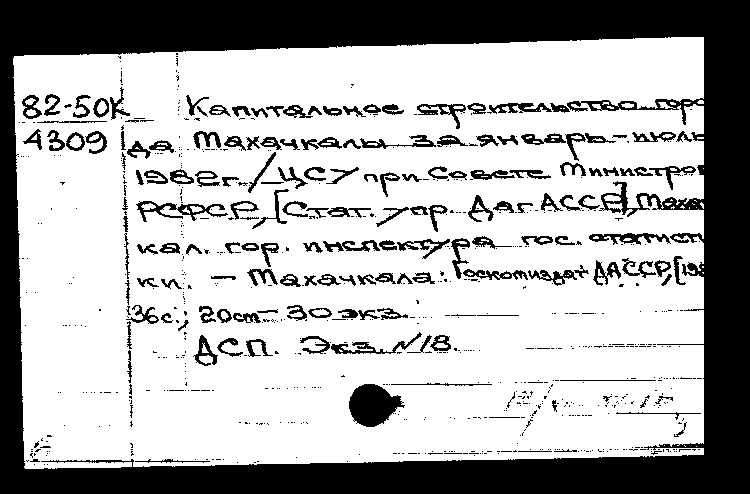 82-50К Капитальное строительство горо
4309 да Махачкалы за январь-июль
1982г. / ЦСУ при Совете Министров
РСФСР, [Стат. упр. Даг АССР], Махач
кал. гор. инспектура гос. статисти
ки. — Махачкала: Госкомиздат ДАССР, [198
36с.; 20см — 30 экз.
ДСП. Экз. №18.